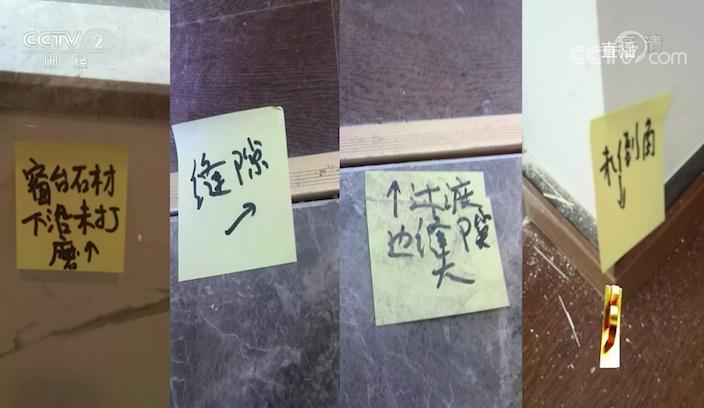 CCTV 2
财经
直播
高清
CCTV.com
窗台石材
下沿未打
磨↑
缝隙
→
↑过渡
边缝隙
大
未倒角
↓